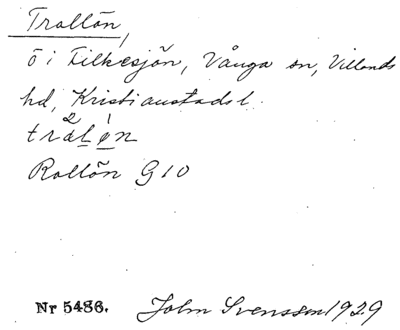 Trollön,
ö i Filkesjön, Vånga sn, Villands
hd, Kristianstads l.
Rollön G10
Nr 5486. John Svensson 1929